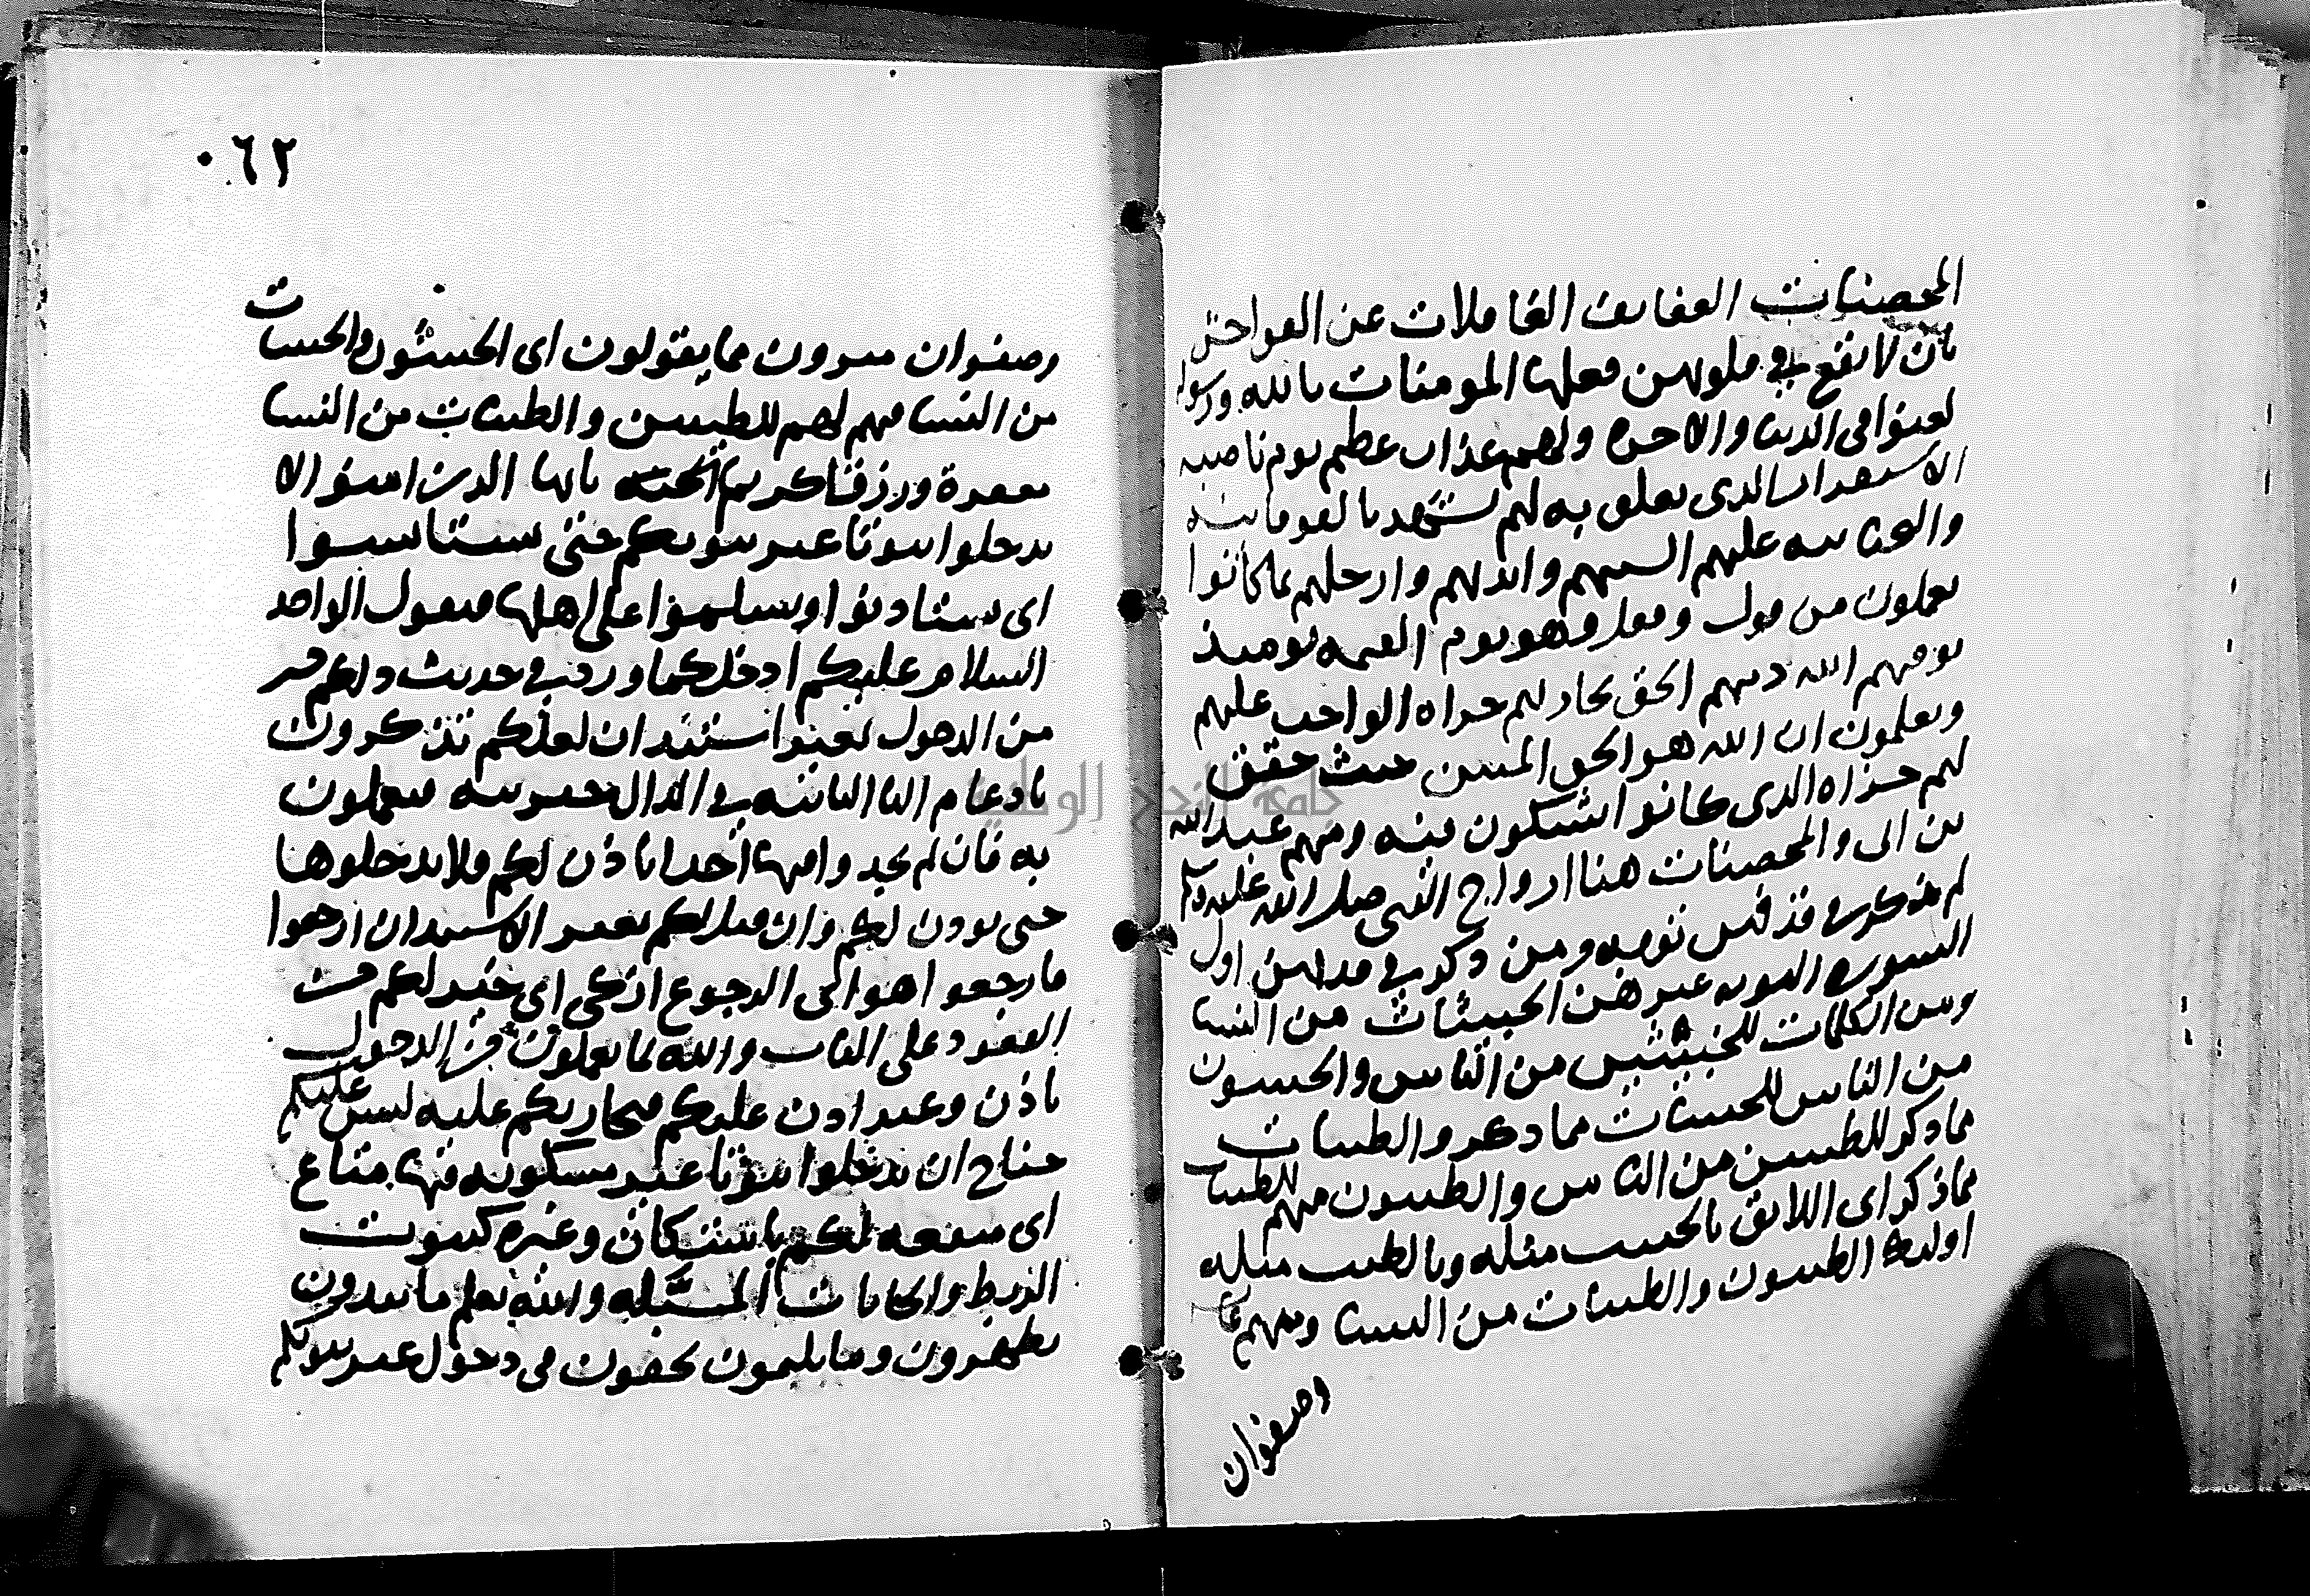 المحصنات العفايف الغافلات عن الفواحش
بان لا يقع في قلوبهن فعلها المومنات بالله ورسوله
لعنوا في الدنيا والاخرة ولهم عذاب عظيم يوم ناصبه
الاستقرار الذي تعلق به لهم تشهد بالفوقانية
والتحتانية عليهم السنتهم وايديهم وارجلهم بما كانوا
يعملون من قول وفعل وهو يوم القيمة يوميذ
يوفيهم الله دينهم الحق يجازيهم جزاه الواجب عليهم
ويعلمون ان الله هو الحق المبين حيث حقق
لهم جزاه الذي كانوا يشكون فيه ومنهم عبد الله
بن ابي والمحصنات هنا ازواج النبي صلى الله عليه وسلم
لم يذكر في قذفهن توبة ومن ذكر في قذفهن اول
السورة التوبة غيرهن الخبيثات من النسا
ومن الكلمات للخبيثين من الناس والخبيثون
من الناس للخبيثات مما ذكر والطيبات
مما ذكر للطيبين من الناس والطيبون منهم للطيبات
مما ذكر اي اللايق بالخبيث مثله وبالطيب مثله
اوليك الطيبون والطيبات من النسا ومنهم عايشة
وصفوان
٠٦٢
وصفوان مبرون مما يقولون اي الخبيثون والخبيثات
من النسا فيهم لهم للطيبين والطيبات من النسا
مغفرة ورزق كريم الجنة يايها الذين امنوا لا
تدخلوا بيوتا غير بيوتكم حتى تستانسوا
اي تستاذنوا وتسلموا على اهلها فيقول الواحد
السلام عليكم اادخل كما ورد في حديث ذلكم خير
من الدخول بغير استئذان لعلكم تذكرون
بادغام التا الثانية في الذال خيريته فتعملون
به فان لم تجدوا فيها احدا ياذن لكم فلا تدخلوها
حتى يوذن لكم وان قيل لكم بعد الاستيذان ارجعوا
فارجعوا هو اي الرجوع ازكى اي خير لكم من
القعود على الباب والله بما تعملون من الدخول
باذن وغير اذن عليكم فيجازيكم عليه ليس عليكم
جناح ان تدخلوا بيوتا غير مسكونة فيها متاع
اي منفعة لكم باستكنان وغيره كبيوت
الربط والخانات المسبلة والله يعلم ما تبدون
تظهرون وما تكتمون تخفون في دخول غير بيوتكم